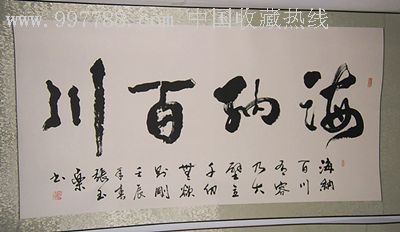 www.997788.com 中国收藏热线
海纳百川
海納
百川
有容
乃大
壁立
千仞
無欲
则剛
壬辰
張玉
书